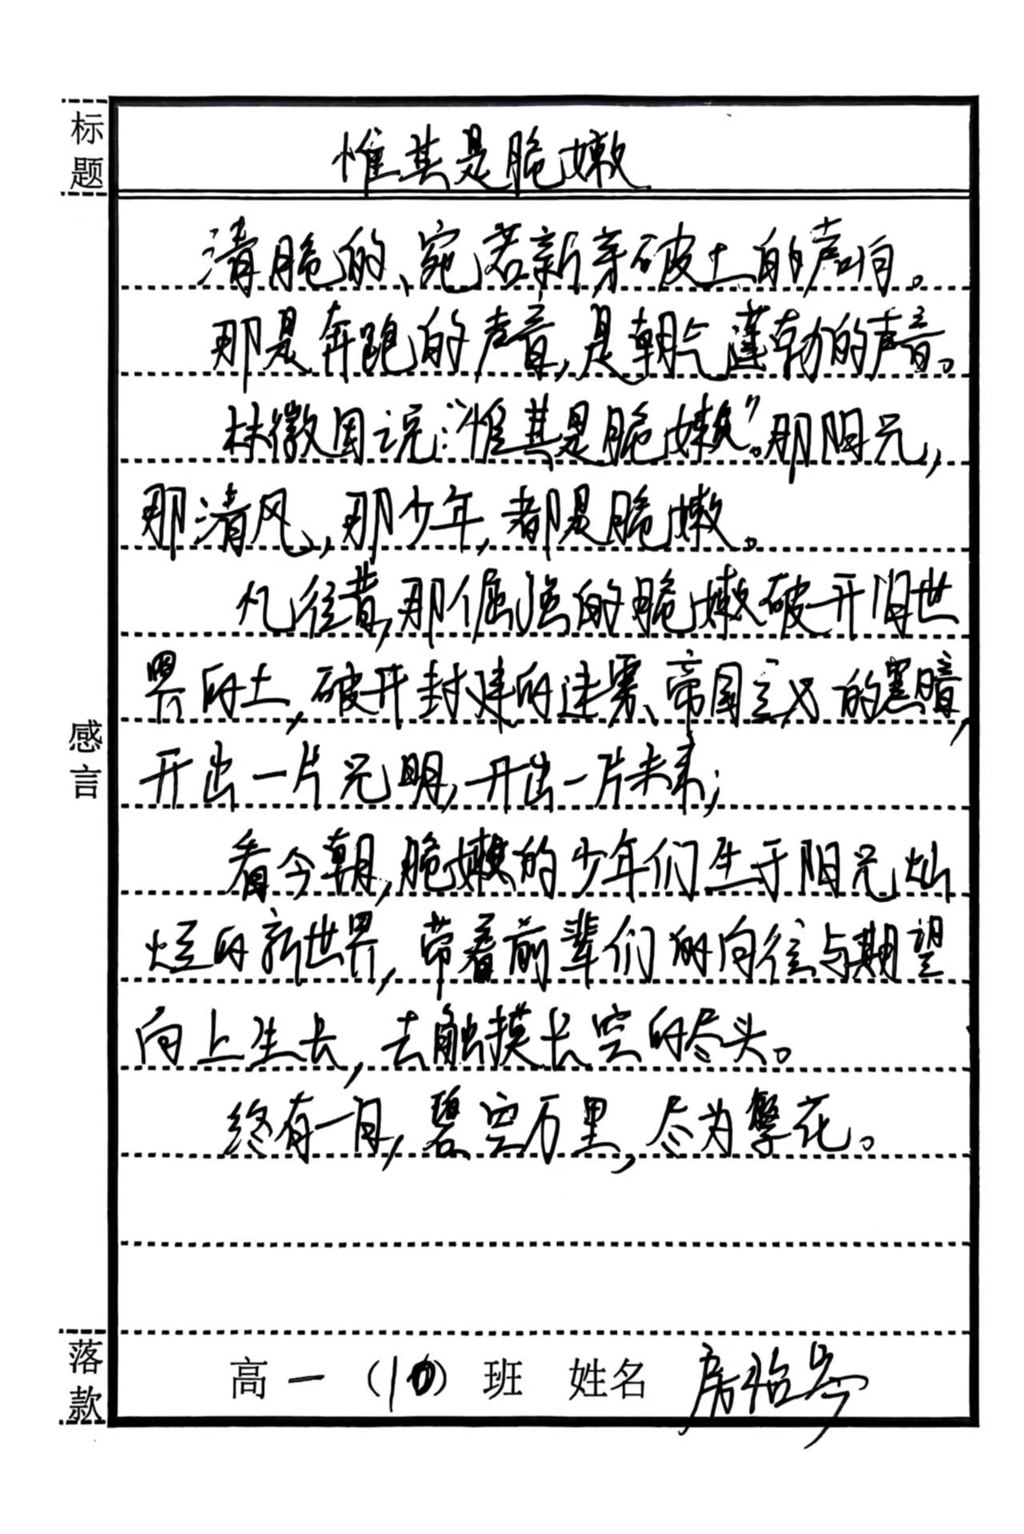 标题
惟其是脆嫩
清脆的、宛若新芽破土的声响。
那是奔跑的声音,是朝气蓬勃的声音。
林徽因说:“惟其是脆嫩”。那阳光,
那清风,那少年,都是脆嫩。
忆往昔,那倔强的脆嫩破开旧世
界的土,破开封建的迷雾、帝国主义的黑暗,
开出一片光明,开出一片未来;
感言
看今朝,脆嫩的少年们生于阳光灿
烂的新世界,带着前辈们的向往与期望
向上生长,去触摸长空的尽头。
终有一日,碧空万里,尽为繁花。
落款
高一(10)班 姓名 房怡